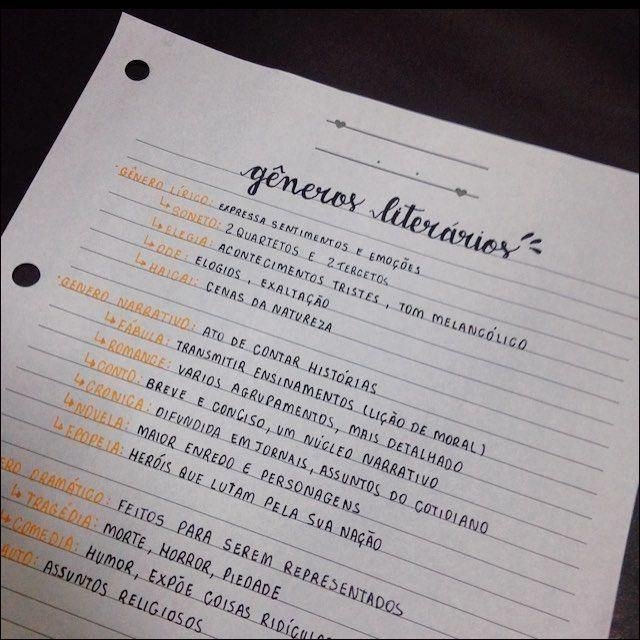 gêneros literários
· GÊNERO LÍRICO: EXPRESSA SENTIMENTOS E EMOÇÕES
↳ SONETO: 2 QUARTETOS E 2 TERCETOS
↳ ELEGIA: ACONTECIMENTOS TRISTES, TOM MELANCÓLICO
↳ ODE: ELOGIOS, EXALTAÇÃO
↳ HAICAI: CENAS DA NATUREZA
· GÊNERO NARRATIVO: ATO DE CONTAR HISTÓRIAS
↳ FÁBULA: TRANSMITIR ENSINAMENTOS (LIÇÃO DE MORAL)
↳ ROMANCE: VÁRIOS AGRUPAMENTOS, MAIS DETALHADO
↳ CONTO: BREVE E CONCISO, UM NÚCLEO NARRATIVO
↳ CRÔNICA: DIFUNDIDA EM JORNAIS, ASSUNTOS DO COTIDIANO
↳ NOVELA: MAIOR ENREDO E PERSONAGENS
↳ EPOPEIA: HERÓIS QUE LUTAM PELA SUA NAÇÃO
DRAMÁTICO: FEITOS PARA SEREM REPRESENTADOS
↳ TRAGÉDIA: MORTE, HORROR, PIEDADE
↳ COMÉDIA: HUMOR, EXPÕE COISAS
AUTO: ASSUNTOS RELIGIOSOS